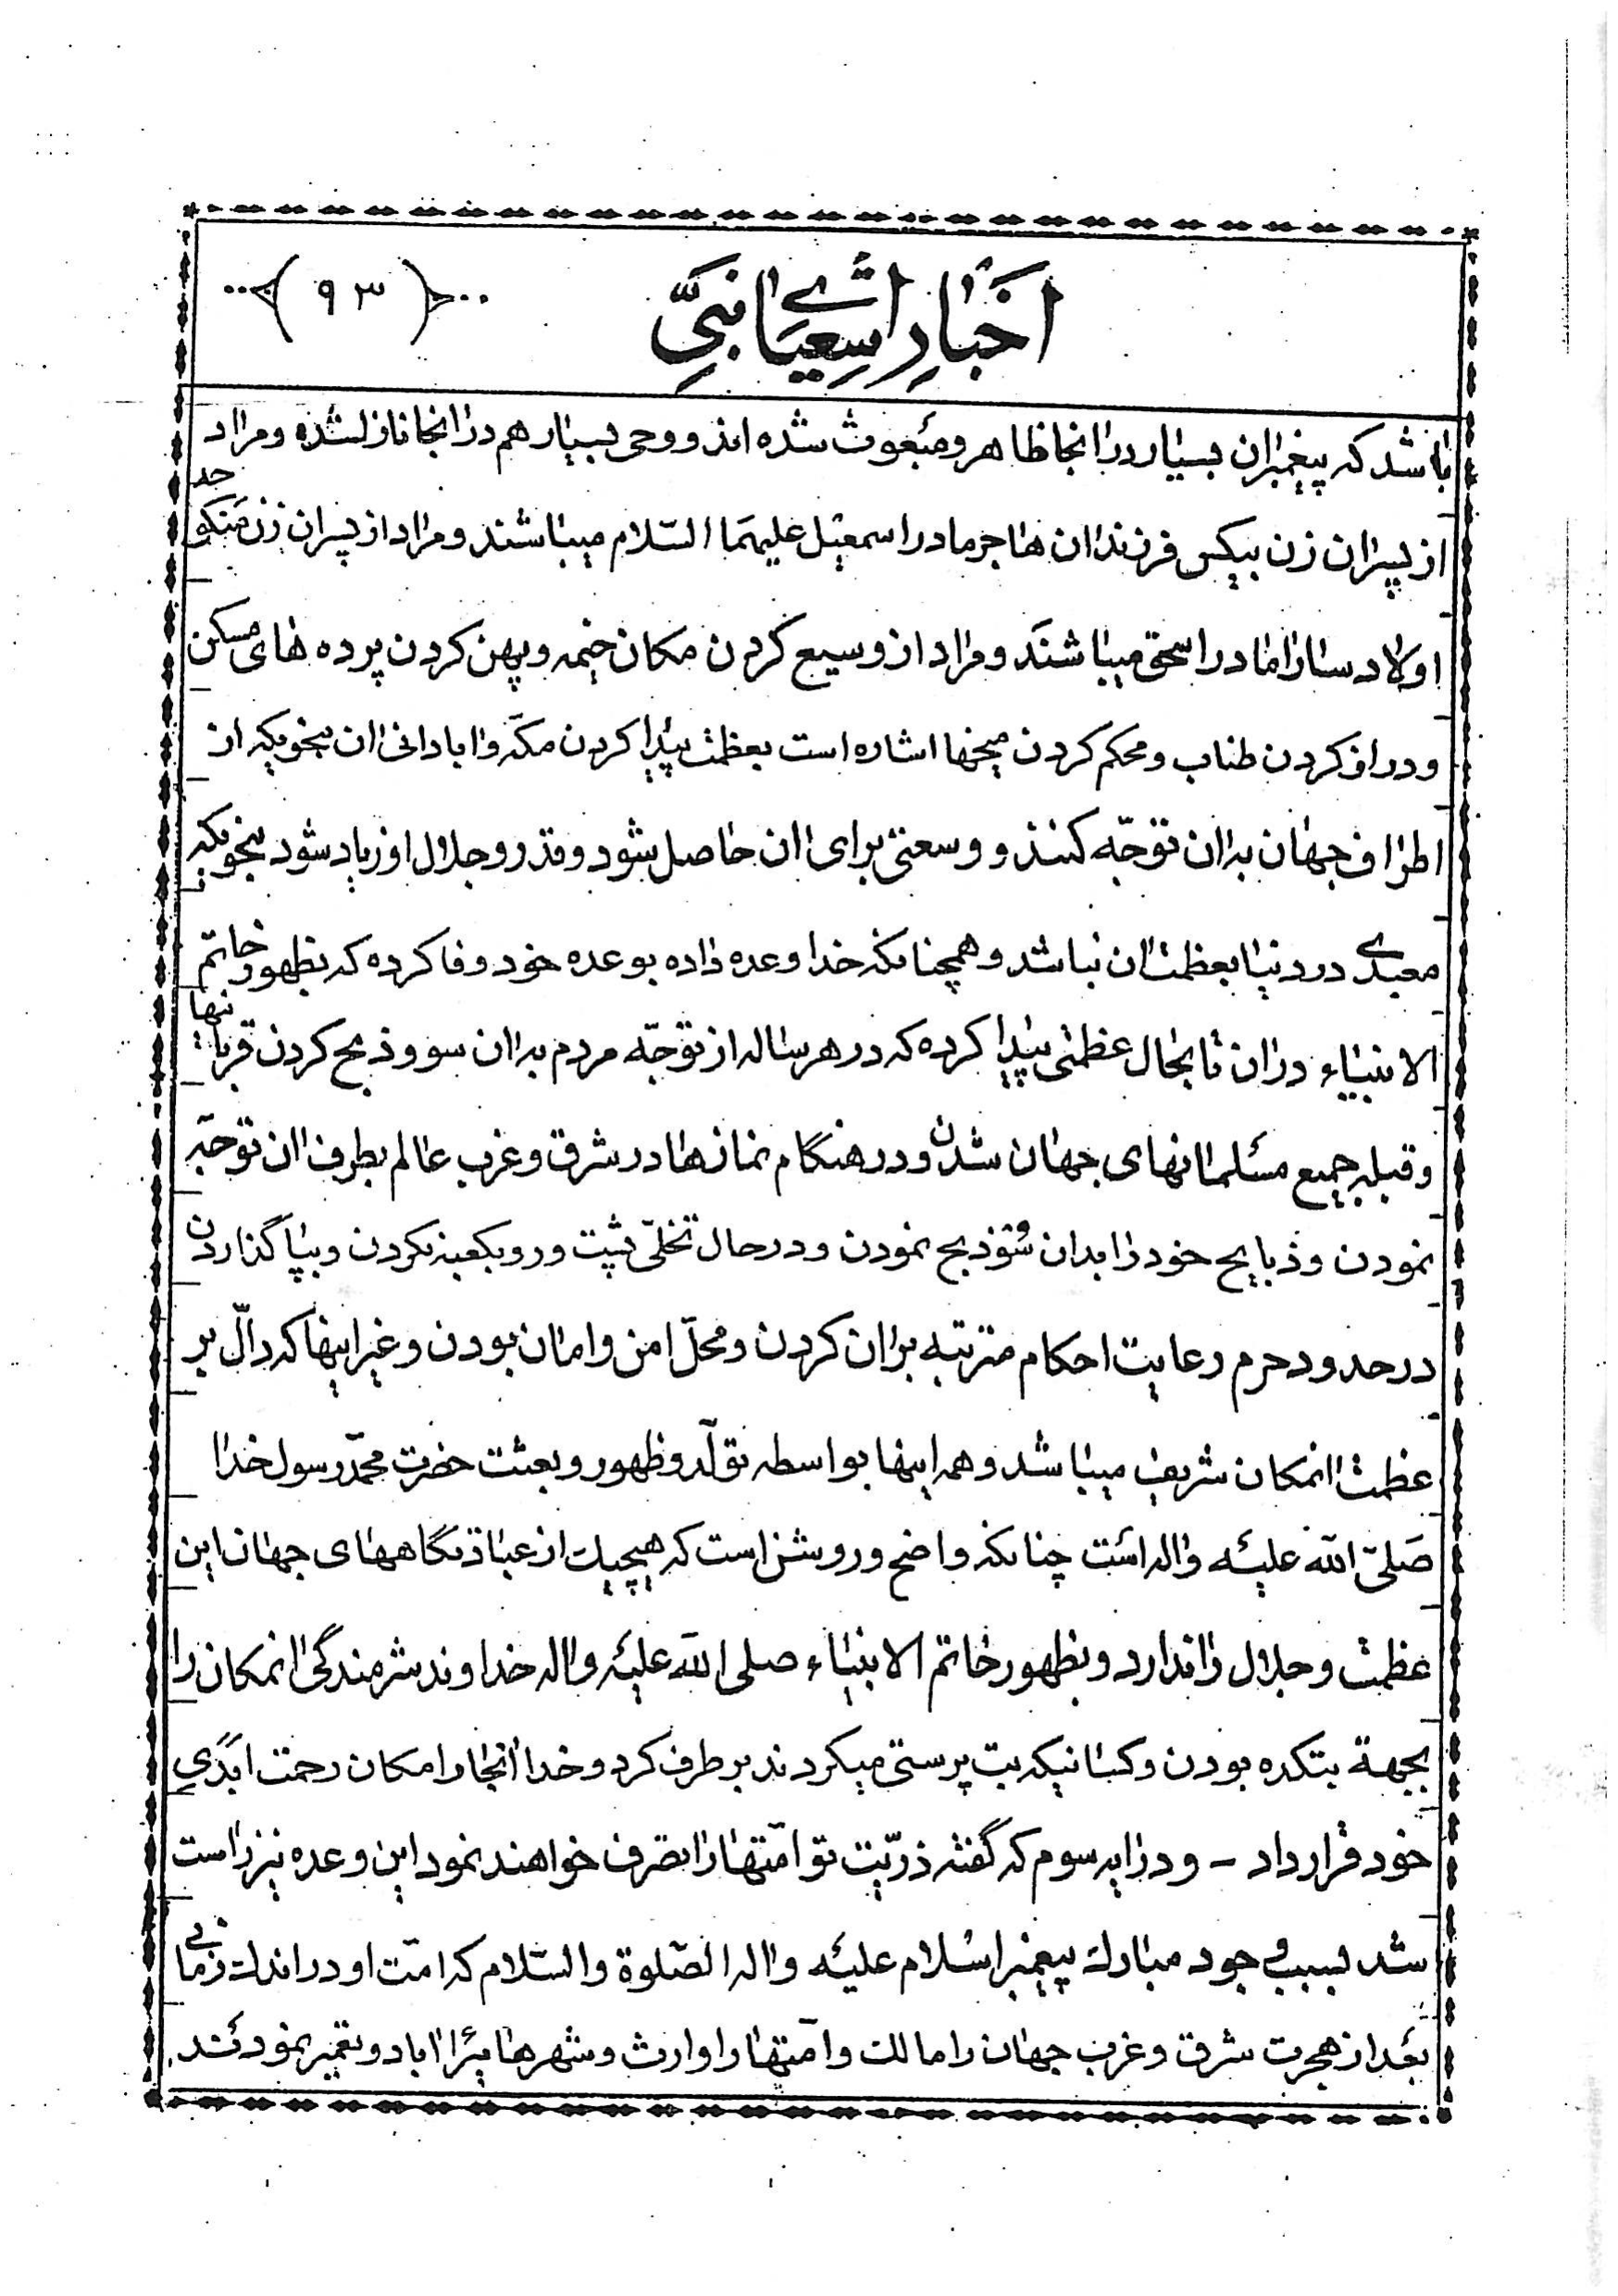 اخبار اشعیای نبی
(۹۳)
باشد که پیغمبران بسیار در انجا ظاهر و مبعوث شده اند و وحی بسیار هم در انجا نازل شده و مراد
از پسران زن بیکس فرزندان هاجر مادر اسمعیل علیهما السّلام میباشند و مراد از پسران زن منکوحه
اولاد سارا مادر اسحق میباشند و مراد از وسیع کردن مکان خیمه و پهن کردن پرده های مسکن
و دراز کردن طناب و محکم کردن میخها اشاره است بعظمت پیدا کردن مکّه و ابادانی ان بنحویکه از
اطراف جهان بدان توجّه کنند و وسعتی برای ان حاصل شود و قدر و جلال او زیاد شود بنحویکه
معبدی در دنیا بعظمت ان نباشد و همچنانکه خدا وعده داده بوعده خود وفا کرده که بظهور خاتم
الانبیاء در ان تا بحال عظمتی پیدا کرده که در هر ساله از توجّه مردم بدان سو و ذبح کردن قربانیها
و قبله جمیع مسلمانهای جهان شدن و در هنگام نمازها در شرق و غرب عالم بطرف ان توجّه
نمودن و ذبایح خود را بدان سو ذبح نمودن و در حال تخلّی پشت و رو بکعبه نکردن و بپا گذاردن
در حدود حرم رعایت احکام مترتبه بر ان کردن و محلّ امن و امان بودن و غیر اینها که دالّ بر
عظمت انمکان شریف میباشد و همه اینها بواسطه تولّد و ظهور و بعثت حضرت محمّد رسول خدا
صلّی الله علیه و اله است چنانکه واضح و روشن است که هیچیک از عبادتگاههای جهان این
عظمت و جلال را ندارد و بظهور خاتم الانبیاء صلی الله علیه و اله خداوند شرمندگی انمکان را
بجهة بتکده بودن و کسانیکه بت پرستی میکردند برطرف کرد و خدا انجا را مکان رحمت ابدی
خود قرار داد - و در ایه سوم که گفته ذرّیت تو امّتها را تصرف خواهند نمود این وعده نیز راست
شد بسبب وجود مبارک پیغمبر اسلام علیه و اله الصّلوة و السّلام که امّت او در اندک زمانی
بعد از هجرت شرق و غرب جهان را مالک و امّتها را وارث و شهرها یرا اباد و تعمیر نمودند